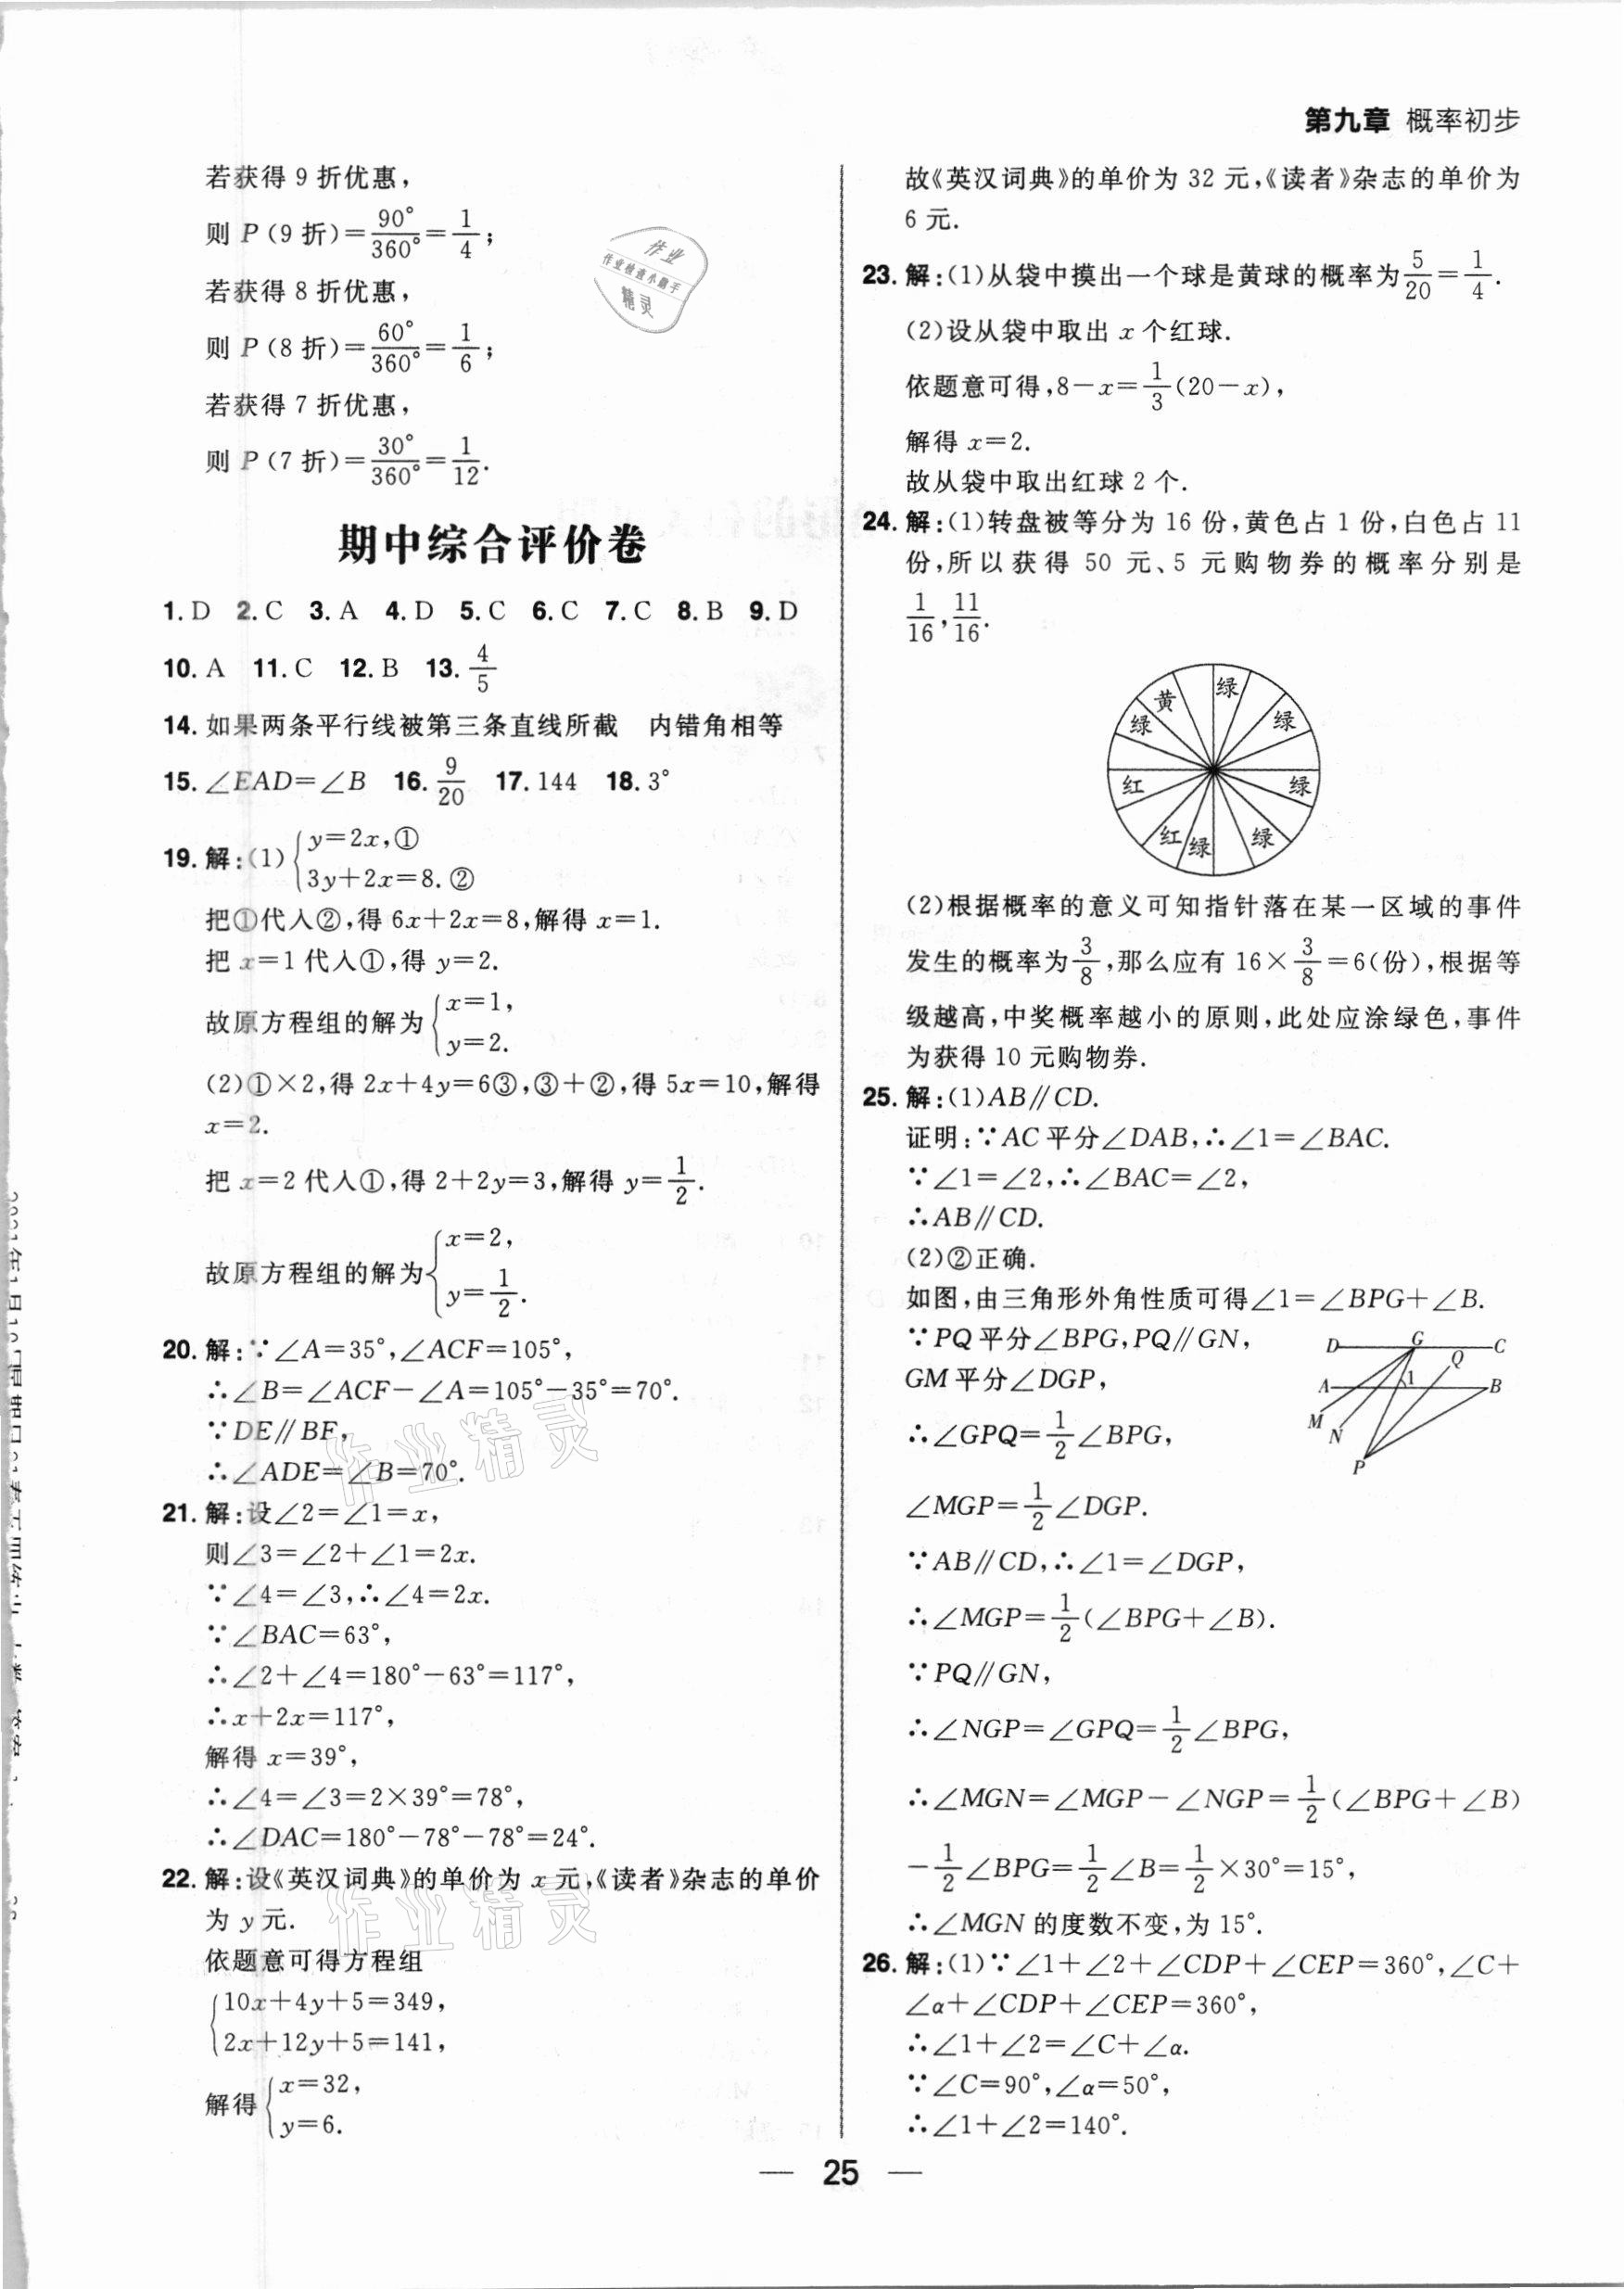 第九章 概率初步
若获得 9 折优惠，
则 P(9 折)=90°/360°=1/4；
若获得 8 折优惠，
则 P(8 折)=60°/360°=1/6；
若获得 7 折优惠，
则 P(7 折)=30°/360°=1/12.
期中综合评价卷
1. D 2. C 3. A 4. D 5. C 6. C 7. C 8. B 9. D
10. A 11. C 12. B 13. 4/5
14. 如果两条平行线被第三条直线所截 内错角相等
15. ∠EAD=∠B 16. 9/20 17. 144 18. 3°
19. 解：(1){y=2x,①
3y+2x=8.②
把①代入②,得 6x+2x=8,解得 x=1.
把 x=1 代入①,得 y=2.
故原方程组的解为{x=1,
y=2.
(2)①×2,得 2x+4y=6③,③+②,得 5x=10,解得
x=2.
把 x=2 代入①,得 2+2y=3,解得 y=1/2.
故原方程组的解为{x=2,
y=1/2.
20. 解：∵∠A=35°,∠ACF=105°,
∴∠B=∠ACF-∠A=105°-35°=70°.
∵DE∥BF,
∴∠ADE=∠B=70°.
21. 解：设∠2=∠1=x,
则∠3=∠2+∠1=2x.
∵∠4=∠3,∴∠4=2x.
∵∠BAC=63°,
∴∠2+∠4=180°-63°=117°,
∴x+2x=117°,
解得 x=39°,
∴∠4=∠3=2×39°=78°,
∴∠DAC=180°-78°-78°=24°.
22. 解：设《英汉词典》的单价为 x 元,《读者》杂志的单价
为 y 元.
依题意可得方程组
{10x+4y+5=349,
2x+12y+5=141,
解得{x=32,
y=6.
故《英汉词典》的单价为 32 元,《读者》杂志的单价为
6 元.
23. 解：(1)从袋中摸出一个球是黄球的概率为5/20=1/4.
(2)设从袋中取出 x 个红球.
依题意可得,8-x=1/3(20-x),
解得 x=2.
故从袋中取出红球 2 个.
24. 解：(1)转盘被等分为 16 份,黄色占 1 份,白色占 11
份,所以获得 50 元、5 元购物券的概率分别是
1/16,11/16.
黄 绿
绿 绿
红 绿
红 绿 绿
(2)根据概率的意义可知指针落在某一区域的事件
发生的概率为3/8,那么应有 16×3/8=6(份),根据等
级越高,中奖概率越小的原则,此处应涂绿色,事件
为获得 10 元购物券.
25. 解：(1)AB∥CD.
证明：∵AC 平分∠DAB,∴∠1=∠BAC.
∵∠1=∠2,∴∠BAC=∠2,
∴AB∥CD.
(2)②正确.
如图,由三角形外角性质可得∠1=∠BPG+∠B.
∵PQ 平分∠BPG,PQ∥GN,
GM 平分∠DGP,
D G C
Q
A 1 B
M
N
P
∴∠GPQ=1/2∠BPG,
∠MGP=1/2∠DGP.
∵AB∥CD,∴∠1=∠DGP,
∴∠MGP=1/2(∠BPG+∠B).
∵PQ∥GN,
∴∠NGP=∠GPQ=1/2∠BPG,
∴∠MGN=∠MGP-∠NGP=1/2(∠BPG+∠B)
-1/2∠BPG=1/2∠B=1/2×30°=15°,
∴∠MGN 的度数不变,为 15°.
26. 解：(1)∵∠1+∠2+∠CDP+∠CEP=360°,∠C+
∠α+∠CDP+∠CEP=360°,
∴∠1+∠2=∠C+∠α.
∵∠C=90°,∠α=50°,
∴∠1+∠2=140°.
— 25 —
作业
作业检查小助手
精灵
作业精灵
作业精灵